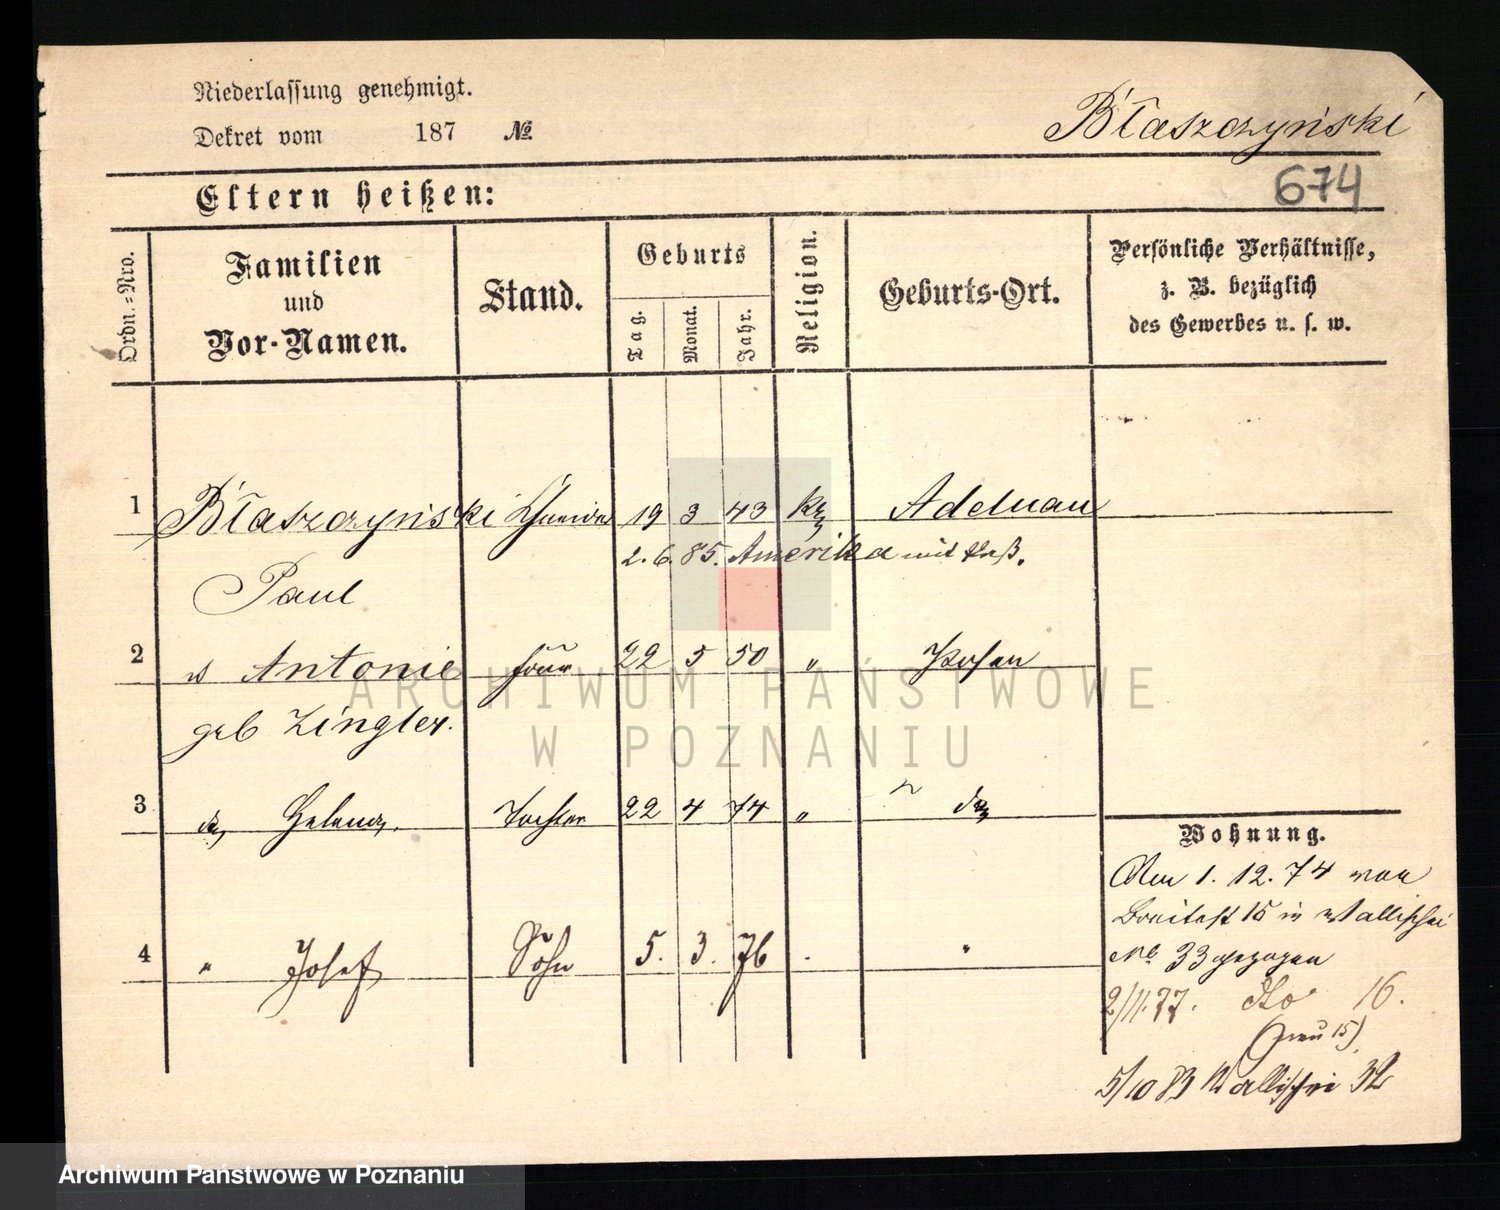 Niederlassung genehmigt.
Dekret vom 187 №
Błaszczyński
674
Eltern heißen:
Ordn.=Nro.
Familien und Vor-Namen.
Stand.
Geburts
Tag.
Monat.
Jahr.
Religion.
Geburts-Ort.
Persönliche Verhältnisse,
z. B. bezüglich
des Gewerbes u. s. w.
1 Błaszczyński Schneider 19 3 43 Adelnau
2. 6. 85. Amerika mit Paß.
Paul
2 Antonie Frau 22 5 50 " Posen
geb Zingler.
3 Helena, Tochter 22 4 74 "
4 " Josef Sohn 5. 3. 76 "
Wohnung.
Am 1. 12. 74 von
Breitest 15 in Wallischei
No 33 gezogen
2/11.77. do 16.
(neu 15)
5/10 83 Wallischei 32
ARCHIWUM PAŃSTWOWE
W POZNANIU
Archiwum Państwowe w Poznaniu